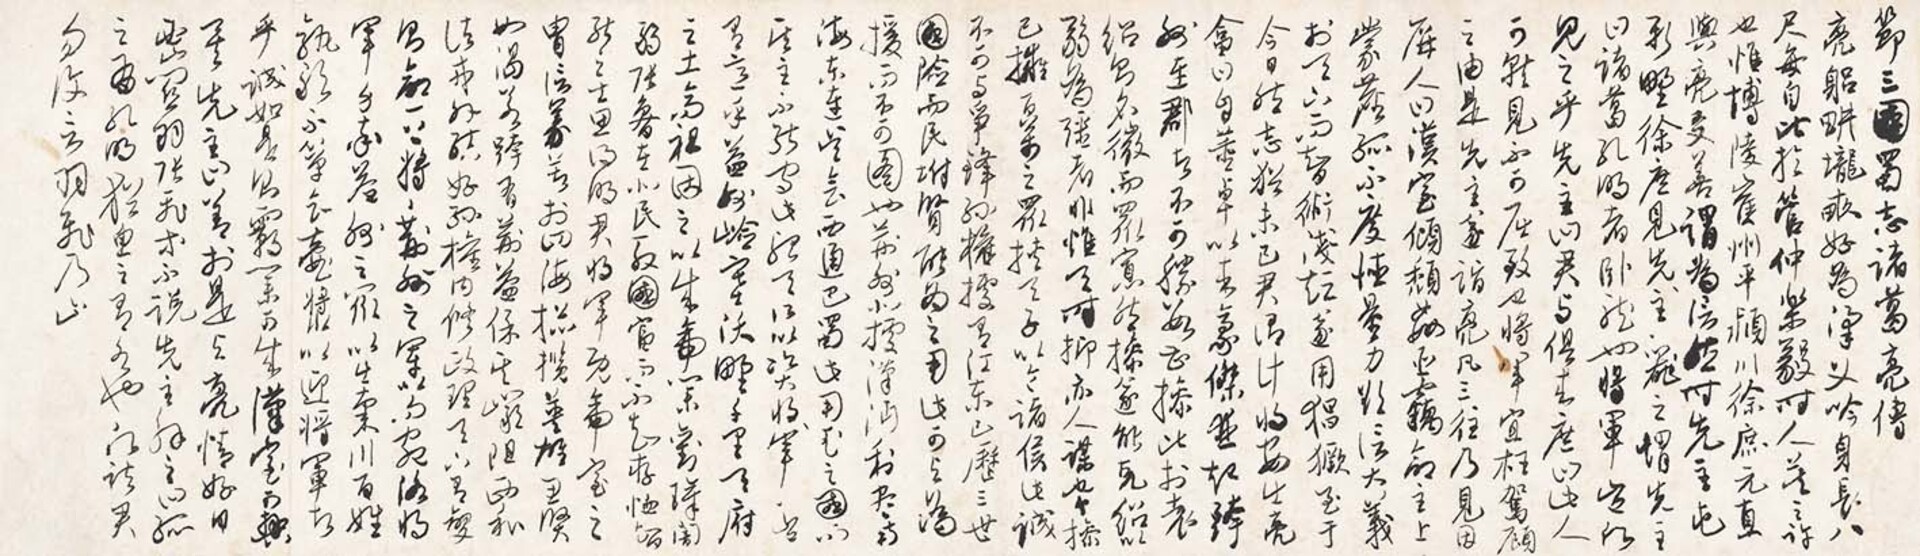 節三國蜀志諸葛亮傳
亮躬畊壠畝好為梁父吟身長八
尺每自比於管仲樂毅時人莫之許
也惟博陵崔州平潁川徐庶元直
與亮友善謂為信然時先主屯
新野徐庶見先主先主器之謂先主
曰諸葛孔明者臥龍也將軍豈願
見之乎先主曰君與俱來庶曰此人
可就見不可屈致也將軍宜枉駕顧
之由是先主遂詣亮凡三往乃見因
屏人曰漢室傾頹姦臣竊命主上
蒙塵孤不度德量力欲信大義
於天下而智術淺短遂用猖獗至于
今日然志猶未已君謂計將安出亮
答曰自董卓以來豪傑並起跨
州連郡者不可勝數曹操比於袁
紹則名微而眾寡然操遂能克紹以
弱為強者非惟天時抑亦人謀也今操
已擁百萬之眾挾天子以令諸侯此誠
不可與爭鋒孫權據有江東已歷三世
國險而民附賢能為之用此可與為
援而不可圖也荊州北據漢沔利盡南
海東連吳會西通巴蜀此用武之國而
其主不能守此殆天所以資將軍
有意乎益州險塞沃野千里天府
之土高祖因之以成帝業劉璋闇
弱張魯在北民殷國富而不知存恤智
能之士思得明君將軍既帝室之
胄信義著於四海摠攬英雄思賢
如渴若跨有荊益保其巖阻西和
諸戎外結好孫權內脩政理天下有變
則命一上將將荊州之軍以向宛洛將
軍身率益州之眾以出秦川百姓
孰敢不簞食壺漿以迎將軍者
乎誠如是則霸業可成漢室可興
矣先主曰善於是與亮情好日
密關羽張飛等不說先主解之曰孤
之有孔明猶魚之有水也願諸君
勿復言羽飛乃止